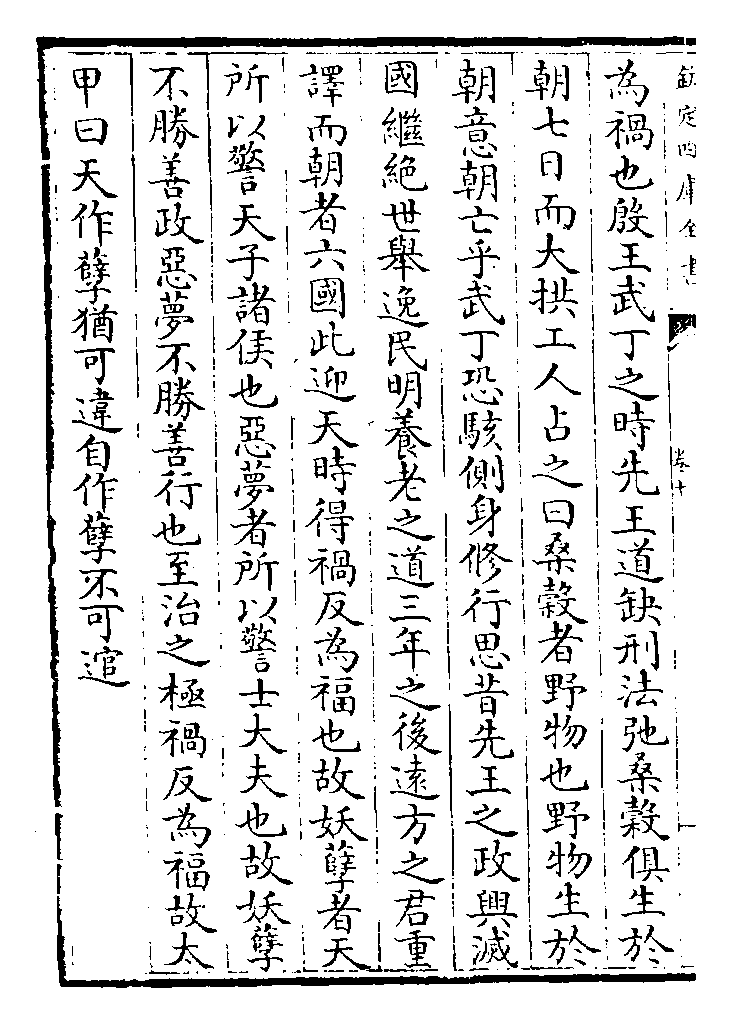 欽定四庫全書
卷十
為禍也殷王武丁之時先王道缺刑法弛桑榖俱生於
朝七日而大拱工人占之曰桑榖者野物也野物生於
朝意朝亡乎武丁恐駭側身修行思昔先王之政興滅
國繼絶世舉逸民明養老之道三年之後遠方之君重
譯而朝者六國此迎天時得禍反為福也故妖孽者天
所以警天子諸侯也惡夢者所以警士大夫也故妖孽
不勝善政惡夢不勝善行也至治之極禍反為福故太
甲曰天作孽猶可違自作孽不可逭